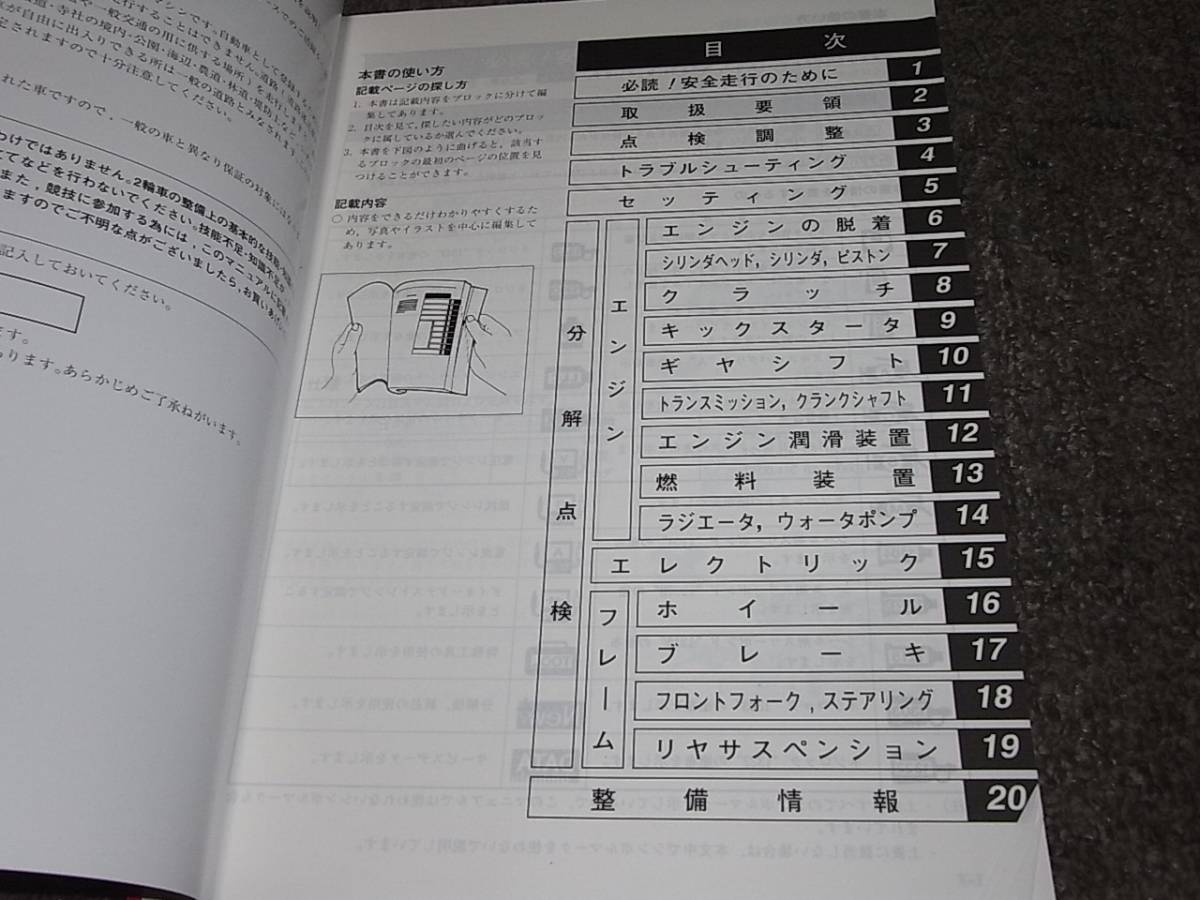 マシンです。自動車として登録する
することはできません。道路(道路
一般交通の用に供する場所)を走行すること
道路・寺社の境内・公園・海辺・農道・林道・堤防上など
が自由に出入りできる所は一般の道路とみなされます
定されますので十分注意してください。
れた車ですので，一般の車と異なり保証の対象には
つけではありません。2輪車の整備上の基本的な技能・知識
てなどを行わないでください。技能不足・知識不足
また，競技に参加する為には，このマニュアルに記載
ますのでご不明な点がございましたら，お買いあげ
記入しておいてください。
ます。
あります。あらかじめご了承ねがいます。
本書の使い方
記載ページの探し方
1. 本書は記載内容をブロックに分けて編
集してあります。
2. 目次を見て，探したい内容がどのブロッ
クに属しているか選んでください。
3. 本書を下図のように曲げると，該当す
るブロックの最初のページの位置を見
つけることができます。
記載内容
○ 内容をできるだけわかりやすくするた
め，写真やイラストを中心に編集して
あります。
目次
必読！安全走行のために 1
取扱要領 2
点検調整 3
トラブルシューティング 4
セッティング 5
分解点検
エンジン
エンジンの脱着 6
シリンダヘッド，シリンダ，ピストン 7
クラッチ 8
キックスタータ 9
ギヤシフト 10
トランスミッション，クランクシャフト 11
エンジン潤滑装置 12
燃料装置 13
ラジエータ，ウォータポンプ 14
エレクトリック 15
フレーム
ホイール 16
ブレーキ 17
フロントフォーク，ステアリング 18
リヤサスペンション 19
整備情報 20